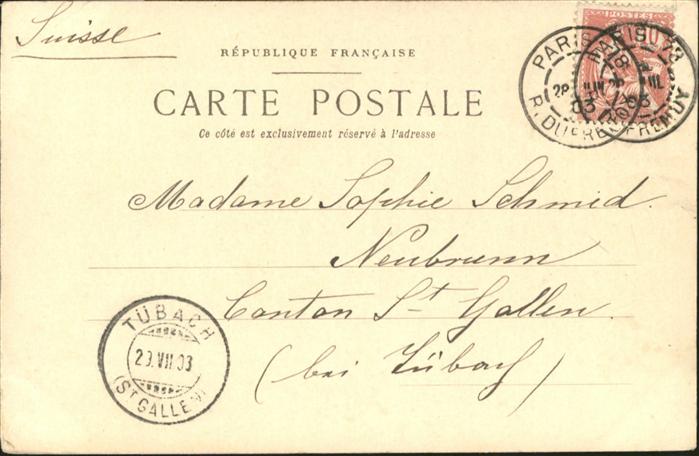 Suisse
RÉPUBLIQUE FRANÇAISE
CARTE POSTALE
Ce côté est exclusivement réservé à l'adresse
POSTES
PARIS
PARIS
R. DUFRENOY
03
Madame Sophie Schmid.
Neubrunn
Canton St Gallen.
(bei Tübach)
TÜBACH
29.VII.03
(ST GALLEN)